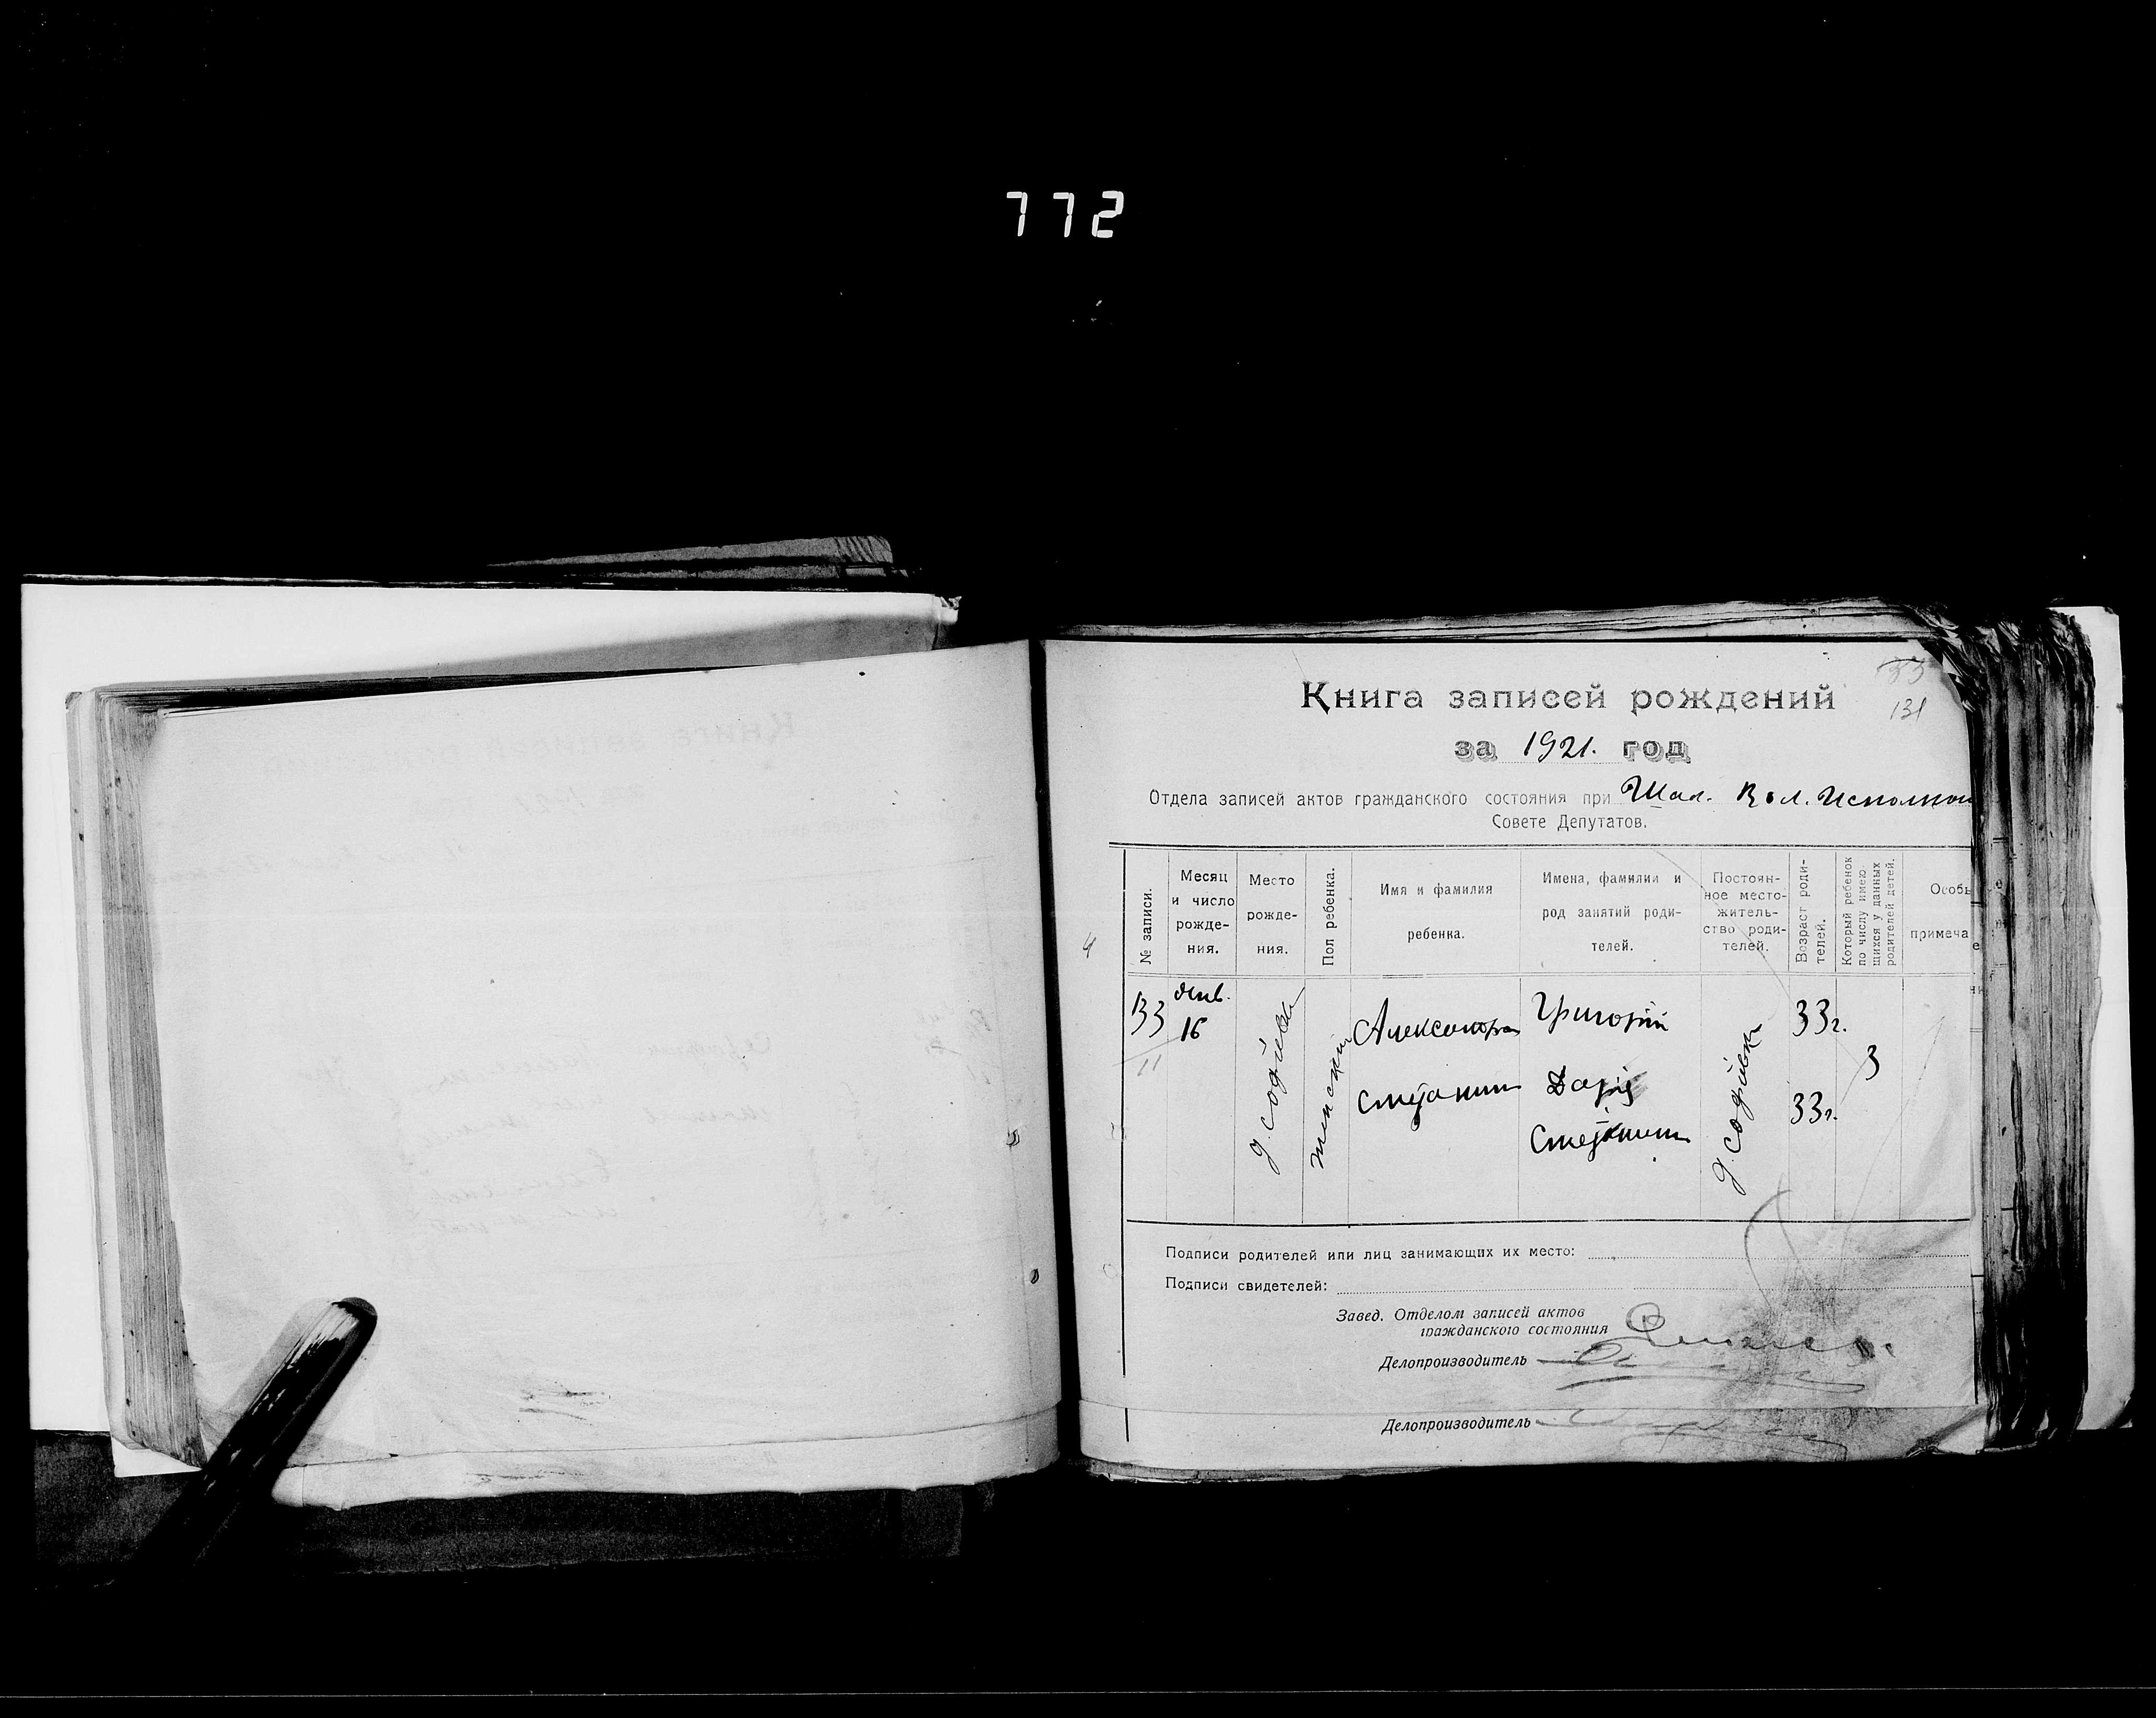 772
131
Книга записей рождений
за 1921. год
Отдела записей актов гражданского состояния при Шал. Вол. Исполком
Совете Депутатов.
№ записи.
Месяц и число рожде- ния.
Место рожде- ния.
Пол ребенка.
Имя и фамилия ребенка.
Имена, фамилии и род занятий роди- телей.
Постоян- ное место- житель- ство роди- телей.
Возраст роди- телей.
Который ребенок по числу имею- щихся у данных родителей детей.
Особы
примеча
133
11
Янв.
16
женский
Александра
Григорий
Дария
33г.
33г.
3
Подписи родителей или лиц занимающих их место:
Подписи свидетелей:
Завед. Отделом записей актов
гражданского состояния
Делопроизводитель
Делопроизводитель